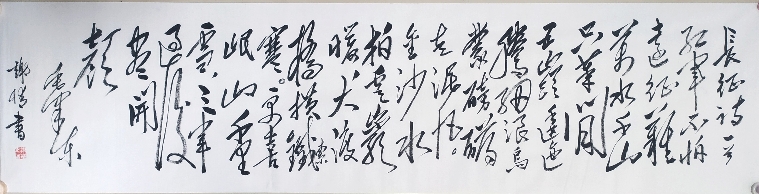 長征诗
红軍不怕
遠征難
萬水千山
只等閒
五岭逶迤
騰細浪烏
蒙磅礴
走泥丸。
金沙水
拍雲巖
暖大渡
橋横鐵索
寒。更喜
岷山千里
雪三軍
過後
盡開
顏
毛澤东
書